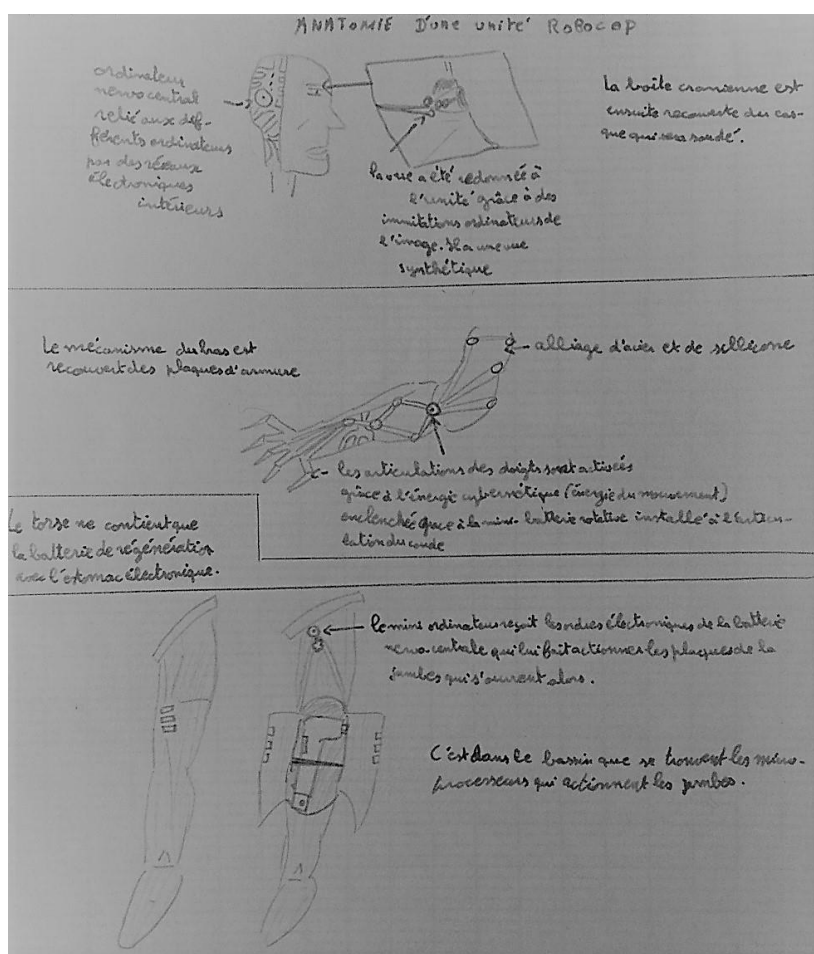 ANATOMIE D'une unité ROBOCOP
ordinateur
nervo central
relié aux dif-
férents ordinateurs
par des réseaux
électroniques
intérieurs
la vue a été redonnée à
l'unité grâce à des
immitations ordinateurs de
l'image. Il a une vue
synthétique
La boîte cranienne est
ensuite recouverte du cas-
que qui sera soudé.
Le mécanisme du bras est
recouvert des plaques d'armure
alliage d'acier et de sillicone
les articulations des doigts sont activées
grâce à l'énergie cybernétique (énergie du mouvement)
enclenchée grace à la mini-batterie rotative installé à l'articu-
lation du coude
Le torse ne contient que
la batterie de régénération
avec l'estomac électronique.
le mini ordinateur reçoit les ordres électroniques de la batterie
nervo centrale qui lui fait actionner les plaques de la
jambes qui s'ouvrent alors.
C'est dans le bassin que se trouvent les micro-
processeurs qui actionnent les jambes.